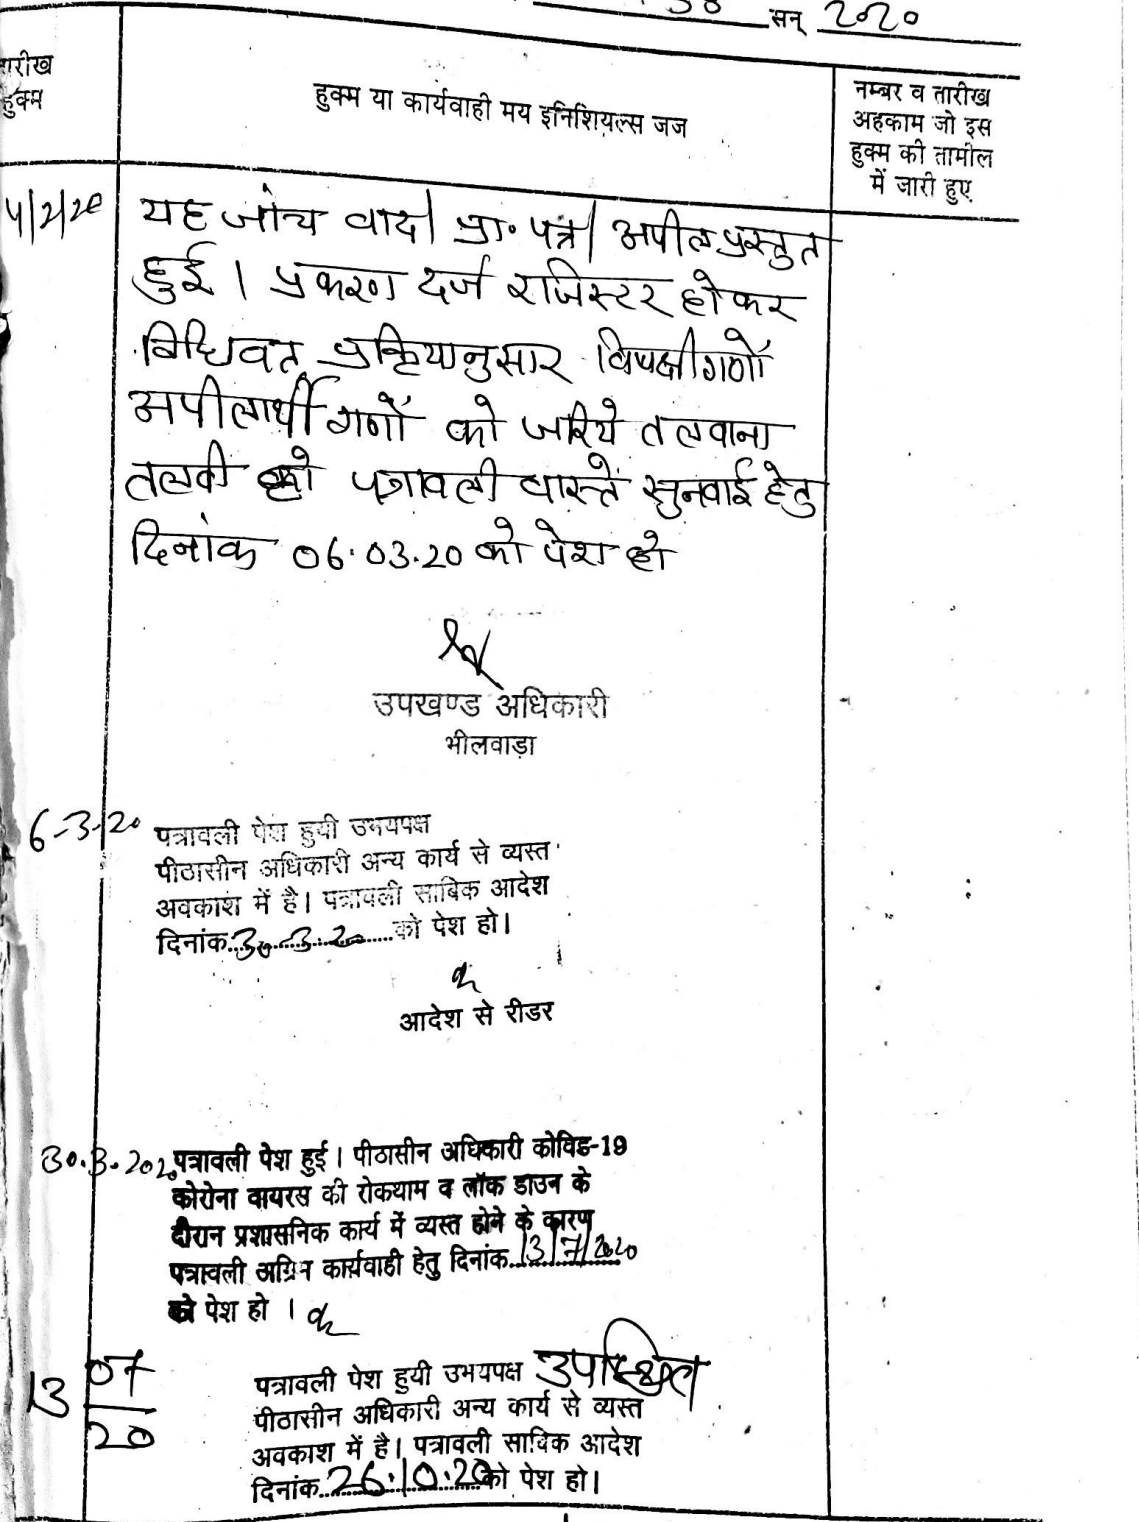 सन् 2020
तारीख
हुक्म
हुक्म या कार्यवाही मय इनिशियल्स जज
नम्बर व तारीख
अहकाम जो इस
हुक्म की तामील
में जारी हुए
4/2/20
यह जांच वाद/ प्रा. पत्र/ अपील प्रस्तुत
हुई। प्रकरण दर्ज रजिस्टर होकर
विधिवत प्रक्रियानुसार विपक्षीगणों
अपीलार्थीगणों को जरिये तलवाना
तलवी हो पत्रावली वास्ते सुनवाई हेतु
दिनांक 06.03.20 को पेश हो
उपखण्ड अधिकारी
भीलवाड़ा
6-3-20
पत्रावली पेश हुयी उभयपक्ष
पीठासीन अधिकारी अन्य कार्य से व्यस्त
अवकाश में है। पत्रावली साबिक आदेश
दिनांक 30-3-20 को पेश हो।
आदेश से रीडर
30.3.2020 पत्रावली पेश हुई। पीठासीन अधिकारी कोविड-19
कोरोना वायरस की रोकथाम व लॉक डाउन के
दौरान प्रशासनिक कार्य में व्यस्त होने के कारण
पत्रावली अग्रिम कार्यवाही हेतु दिनांक 13/7/2020
को पेश हो ।
13 07/20
पत्रावली पेश हुयी उभयपक्ष उपस्थित
पीठासीन अधिकारी अन्य कार्य से व्यस्त
अवकाश में है। पत्रावली साबिक आदेश
दिनांक 26.10.20 को पेश हो।